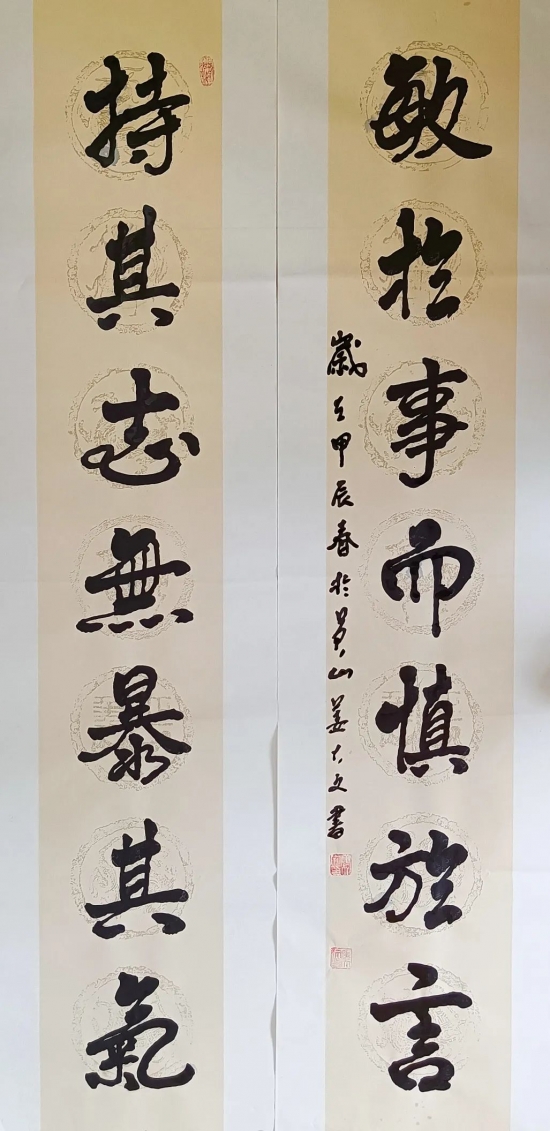 持其志無暴其氣
敏於事而慎於言
歲在甲辰春於山姜大文書